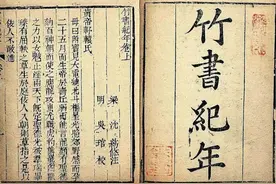 竹書紀年
竹書紀年卷上
梁 沈約附注
明 吳琯校
黃帝軒轅氏
母曰附寶見大電繞北斗樞星光照郊野感而孕
二十五月而生帝於壽丘弱而能言龍顏有聖德劾
百神朝而使之應龍攻蚩尤戰虎豹熊羆四獸
之力以女魃止淫雨天下既定聖德光被羣瑞畢
臻有屈軼之草生於庭佞人入朝則草指之是以
佞人不敢進